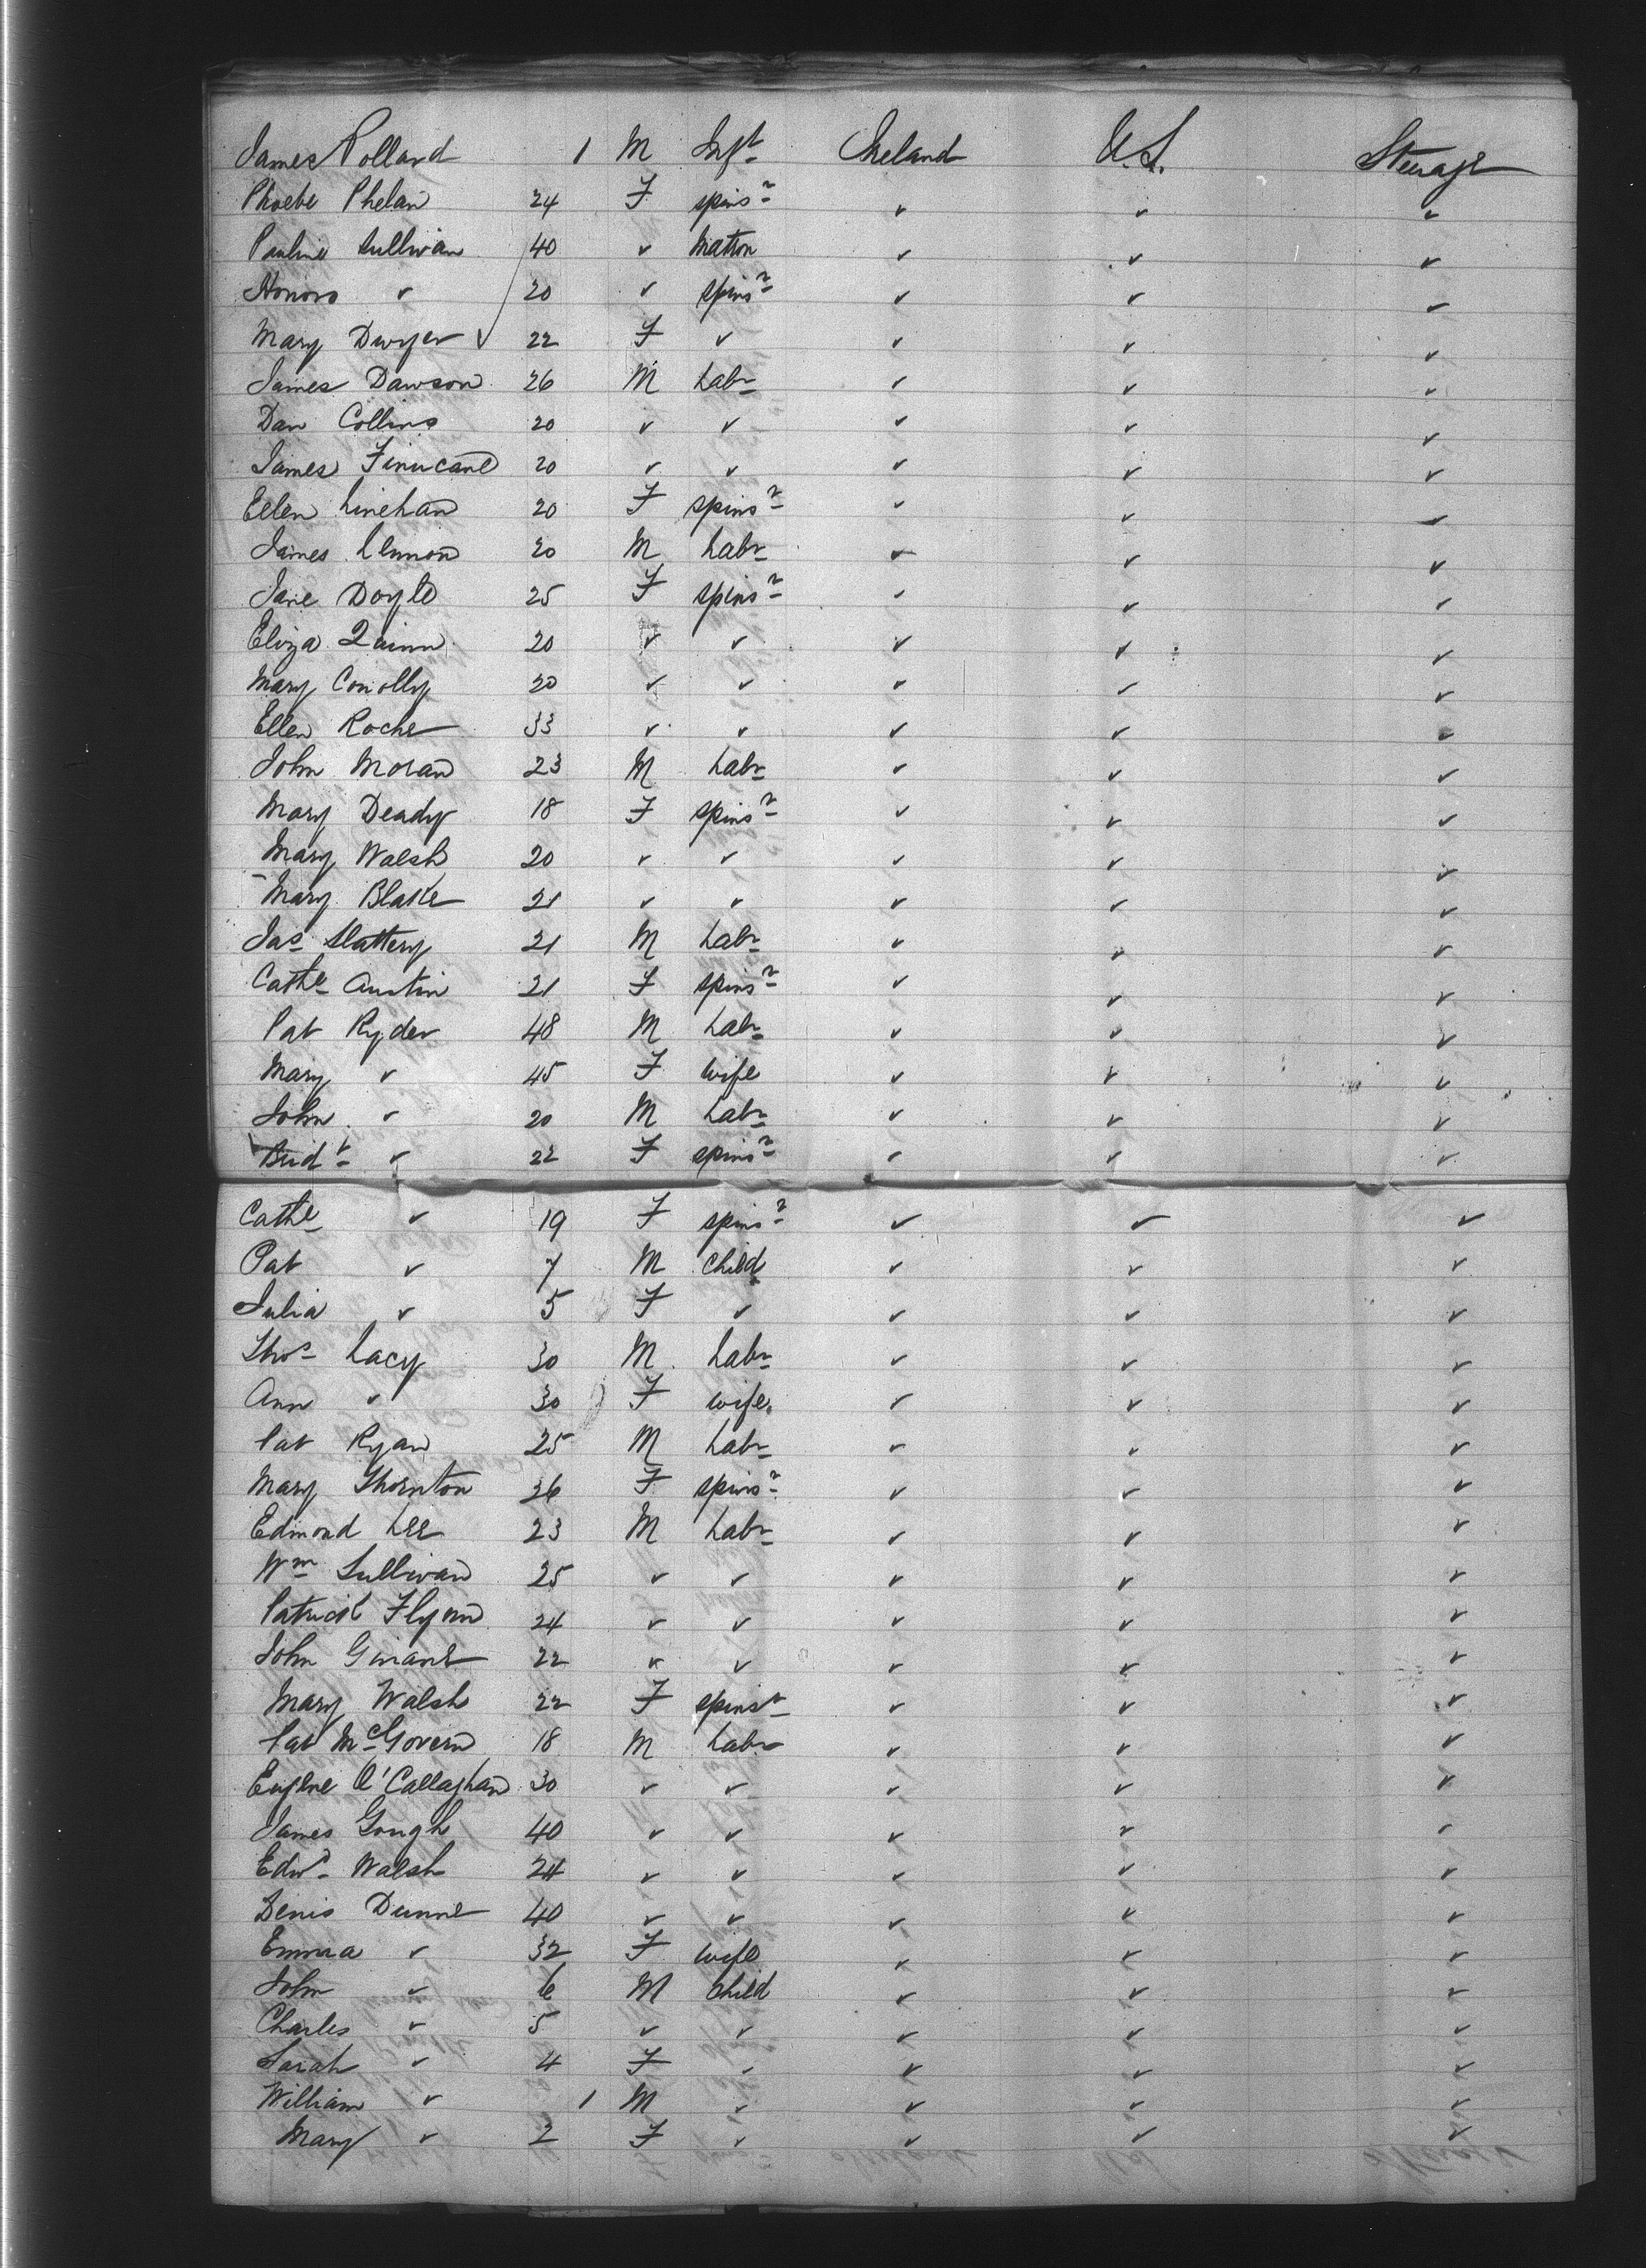 James Pollard 1 M Inft Ireland U.S. Steerage
Phoebe Phelan 24 F spinsr ✓ ✓ ✓
Pauline Sullivan 40 ✓ Matron ✓ ✓ ✓
Honora ✓ 20 ✓ spinsr ✓ ✓ ✓
Mary Dwyer ✓ 22 F ✓ ✓ ✓ ✓
James Dawson 26 M Labr ✓ ✓ ✓
Dan Collins 20 ✓ ✓ ✓ ✓ ✓
James Finucane 20 ✓ ✓ ✓ ✓ ✓
Ellen Linehan 20 F spinsr ✓ ✓ ✓
James Lennon 20 M Labr ✓ ✓ ✓
Jane Doyle 25 F spinsr ✓ ✓ ✓
Eliza Quinn 20 ✓ ✓ ✓ ✓ ✓
Mary Conolly 20 ✓ ✓ ✓ ✓ ✓
Ellen Roche 33 ✓ ✓ ✓ ✓ ✓
John Moran 23 M Labr ✓ ✓ ✓
Mary Deady 18 F spinsr ✓ ✓ ✓
Mary Walsh 20 ✓ ✓ ✓ ✓ ✓
Mary Blake 21 ✓ ✓ ✓ ✓ ✓
Jas Slattery 21 M Labr ✓ ✓ ✓
Cathe Austin 21 F spinsr ✓ ✓ ✓
Pat Ryder 48 M Labr ✓ ✓ ✓
Mary ✓ 45 F wife ✓ ✓ ✓
John ✓ 20 M Labr ✓ ✓ ✓
Bridt ✓ 22 F spinsr ✓ ✓ ✓
Cathe ✓ 19 F spinsr ✓ ✓ ✓
Pat ✓ 7 M child ✓ ✓ ✓
Julia ✓ 5 F ✓ ✓ ✓ ✓
Thos Lacy 30 M Labr ✓ ✓ ✓
Ann ✓ 30 F wife ✓ ✓ ✓
Pat Ryan 25 M Labr ✓ ✓ ✓
Mary Thornton 26 F spinsr ✓ ✓ ✓
Edmond Lee 23 M Labr ✓ ✓ ✓
Wm Sullivan 25 ✓ ✓ ✓ ✓ ✓
Patrick Flynn 24 ✓ ✓ ✓ ✓ ✓
John 22 ✓ ✓ ✓ ✓ ✓
Mary Walsh 22 F spinsr ✓ ✓ ✓
Pat McGovern 18 M Labr ✓ ✓ ✓
Eugene O'Callaghan 30 ✓ ✓ ✓ ✓ ✓
James Gough 40 ✓ ✓ ✓ ✓ ✓
Edwd Walsh 24 ✓ ✓ ✓ ✓ ✓
Denis Dunne 40 ✓ ✓ ✓ ✓ ✓
Emma ✓ 32 F wife ✓ ✓ ✓
John ✓ 6 M child ✓ ✓ ✓
Charles ✓ 5 ✓ ✓ ✓ ✓ ✓
Sarah ✓ 4 F ✓ ✓ ✓ ✓
William ✓ 1 M ✓ ✓ ✓ ✓
Mary ✓ 2 F ✓ ✓ ✓ ✓